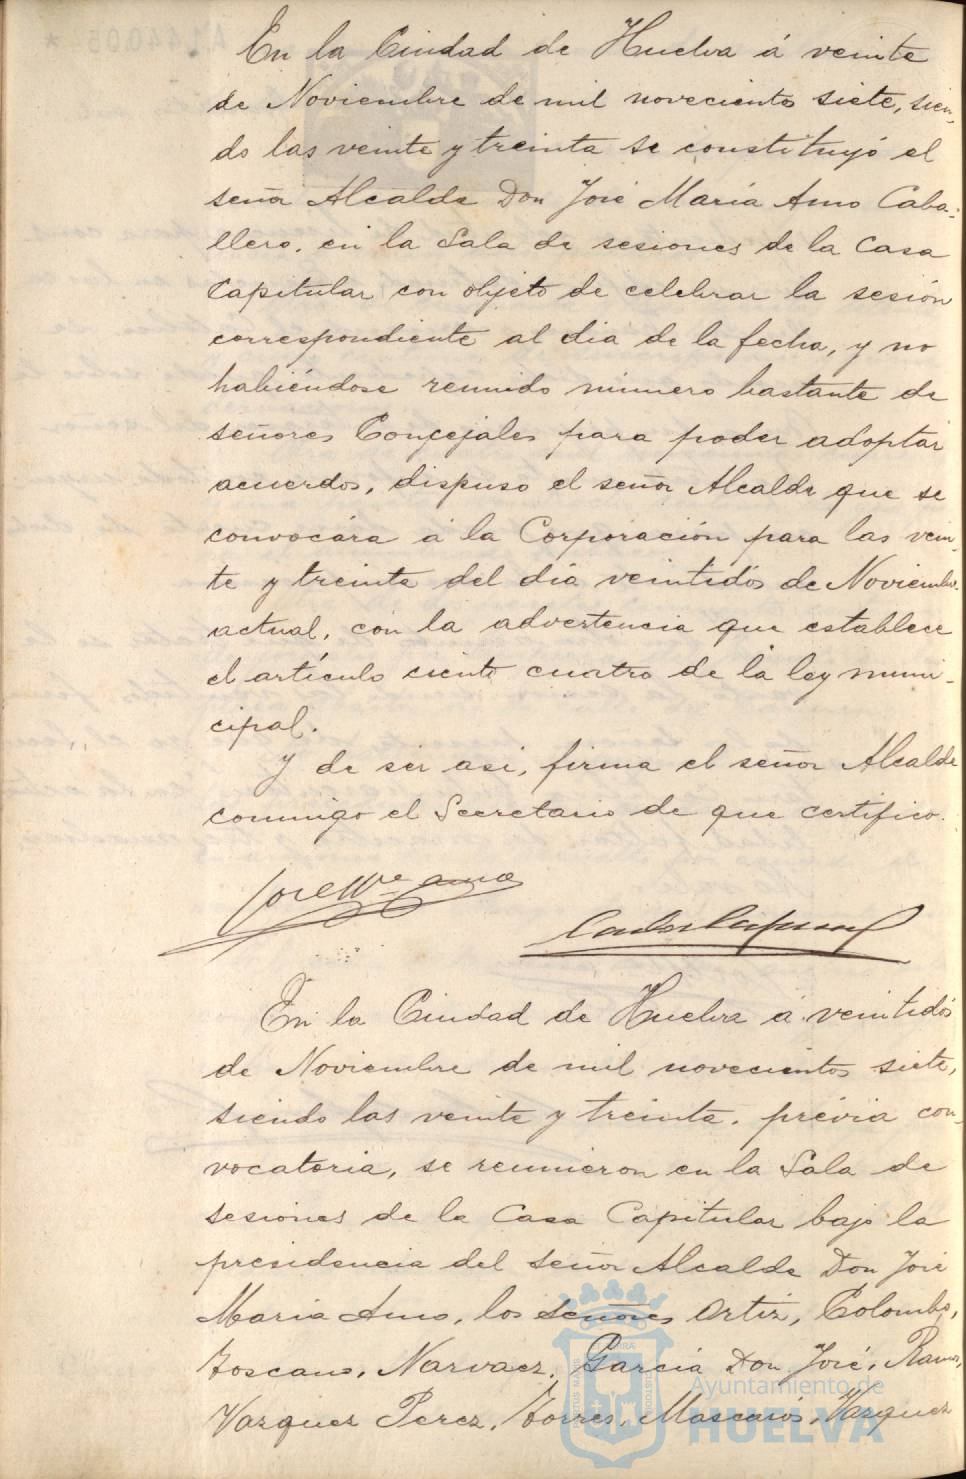 En la Ciudad de Huelva á veinte
de Noviembre de mil novecientos siete, sien-
do las veinte y treinta se constituyó el
señor Alcalde Don José María Amo Caba-
llero, en la Sala de sesiones de la Casa
Capitular con objeto de celebrar la sesión
correspondiente al dia de la fecha, y no
habiéndose reunido número bastante de
señores Concejales para poder adoptar
acuerdos, dispuso el señor Alcalde que se
convocára á la Corporación para las vein-
te y treinta del dia veintidós de Noviembre
actual, con la advertencia que establece
el artículo ciento cuatro de la ley muni-
cipal.
Y de ser asi, firma el señor Alcalde
conmigo el Secretario de que certifico.
José Mª Amo
En la Ciudad de Huelva á veintidós
de Noviembre de mil novecientos siete,
siendo las veinte y treinta, prévia con-
vocatoria, se reunieron en la Sala de
sesiones de la Casa Capitular bajo la
presidencia del señor Alcalde Don José
Maria Amo, los señores Ortiz, Colombo,
Toscano, Narvaez, García Don José, Ramos,
Vazquez Perez, Torres, Mascarós, Vazquez
Ayuntamiento de
HUELVA